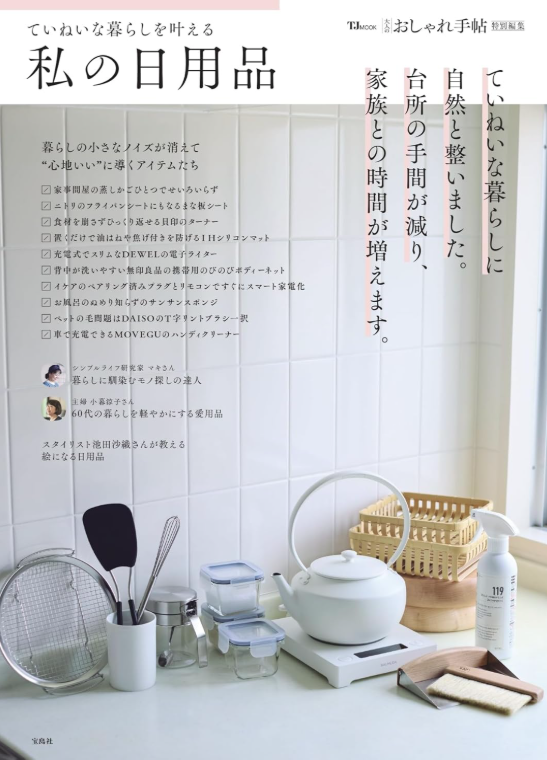 ていねいな暮らしを叶える
私の日用品
TJMOOK 大人のおしゃれ手帖 特別編集
ていねいな暮らしに
自然と整いました。
台所の手間が減り、
家族との時間が増えます。
暮らしの小さなノイズが消えて
“心地いい”に導くアイテムたち
家事問屋の蒸しかごひとつでせいろいらず
ニトリのフライパンシートにもなるまな板シート
食材を崩さずひっくり返せる貝印のターナー
置くだけで油はねや焦げ付きを防げるIHシリコンマット
充電式でスリムなDEWELの電子ライター
背中が洗いやすい無印良品の携帯用のびのびボディーネット
イケアのペアリング済みプラグとリモコンですぐにスマート家電化
お風呂のぬめり知らずのサンサンスポンジ
ペットの毛問題はDAISOのT字リントブラシ一択
車で充電できるMOVEGUのハンディクリーナー
シンプルライフ研究家 マキさん
暮らしに馴染むモノ探しの達人
主婦 小暮涼子さん
60代の暮らしを軽やかにする愛用品
スタイリスト池田沙織さんが教える
絵になる日用品
119
宝島社